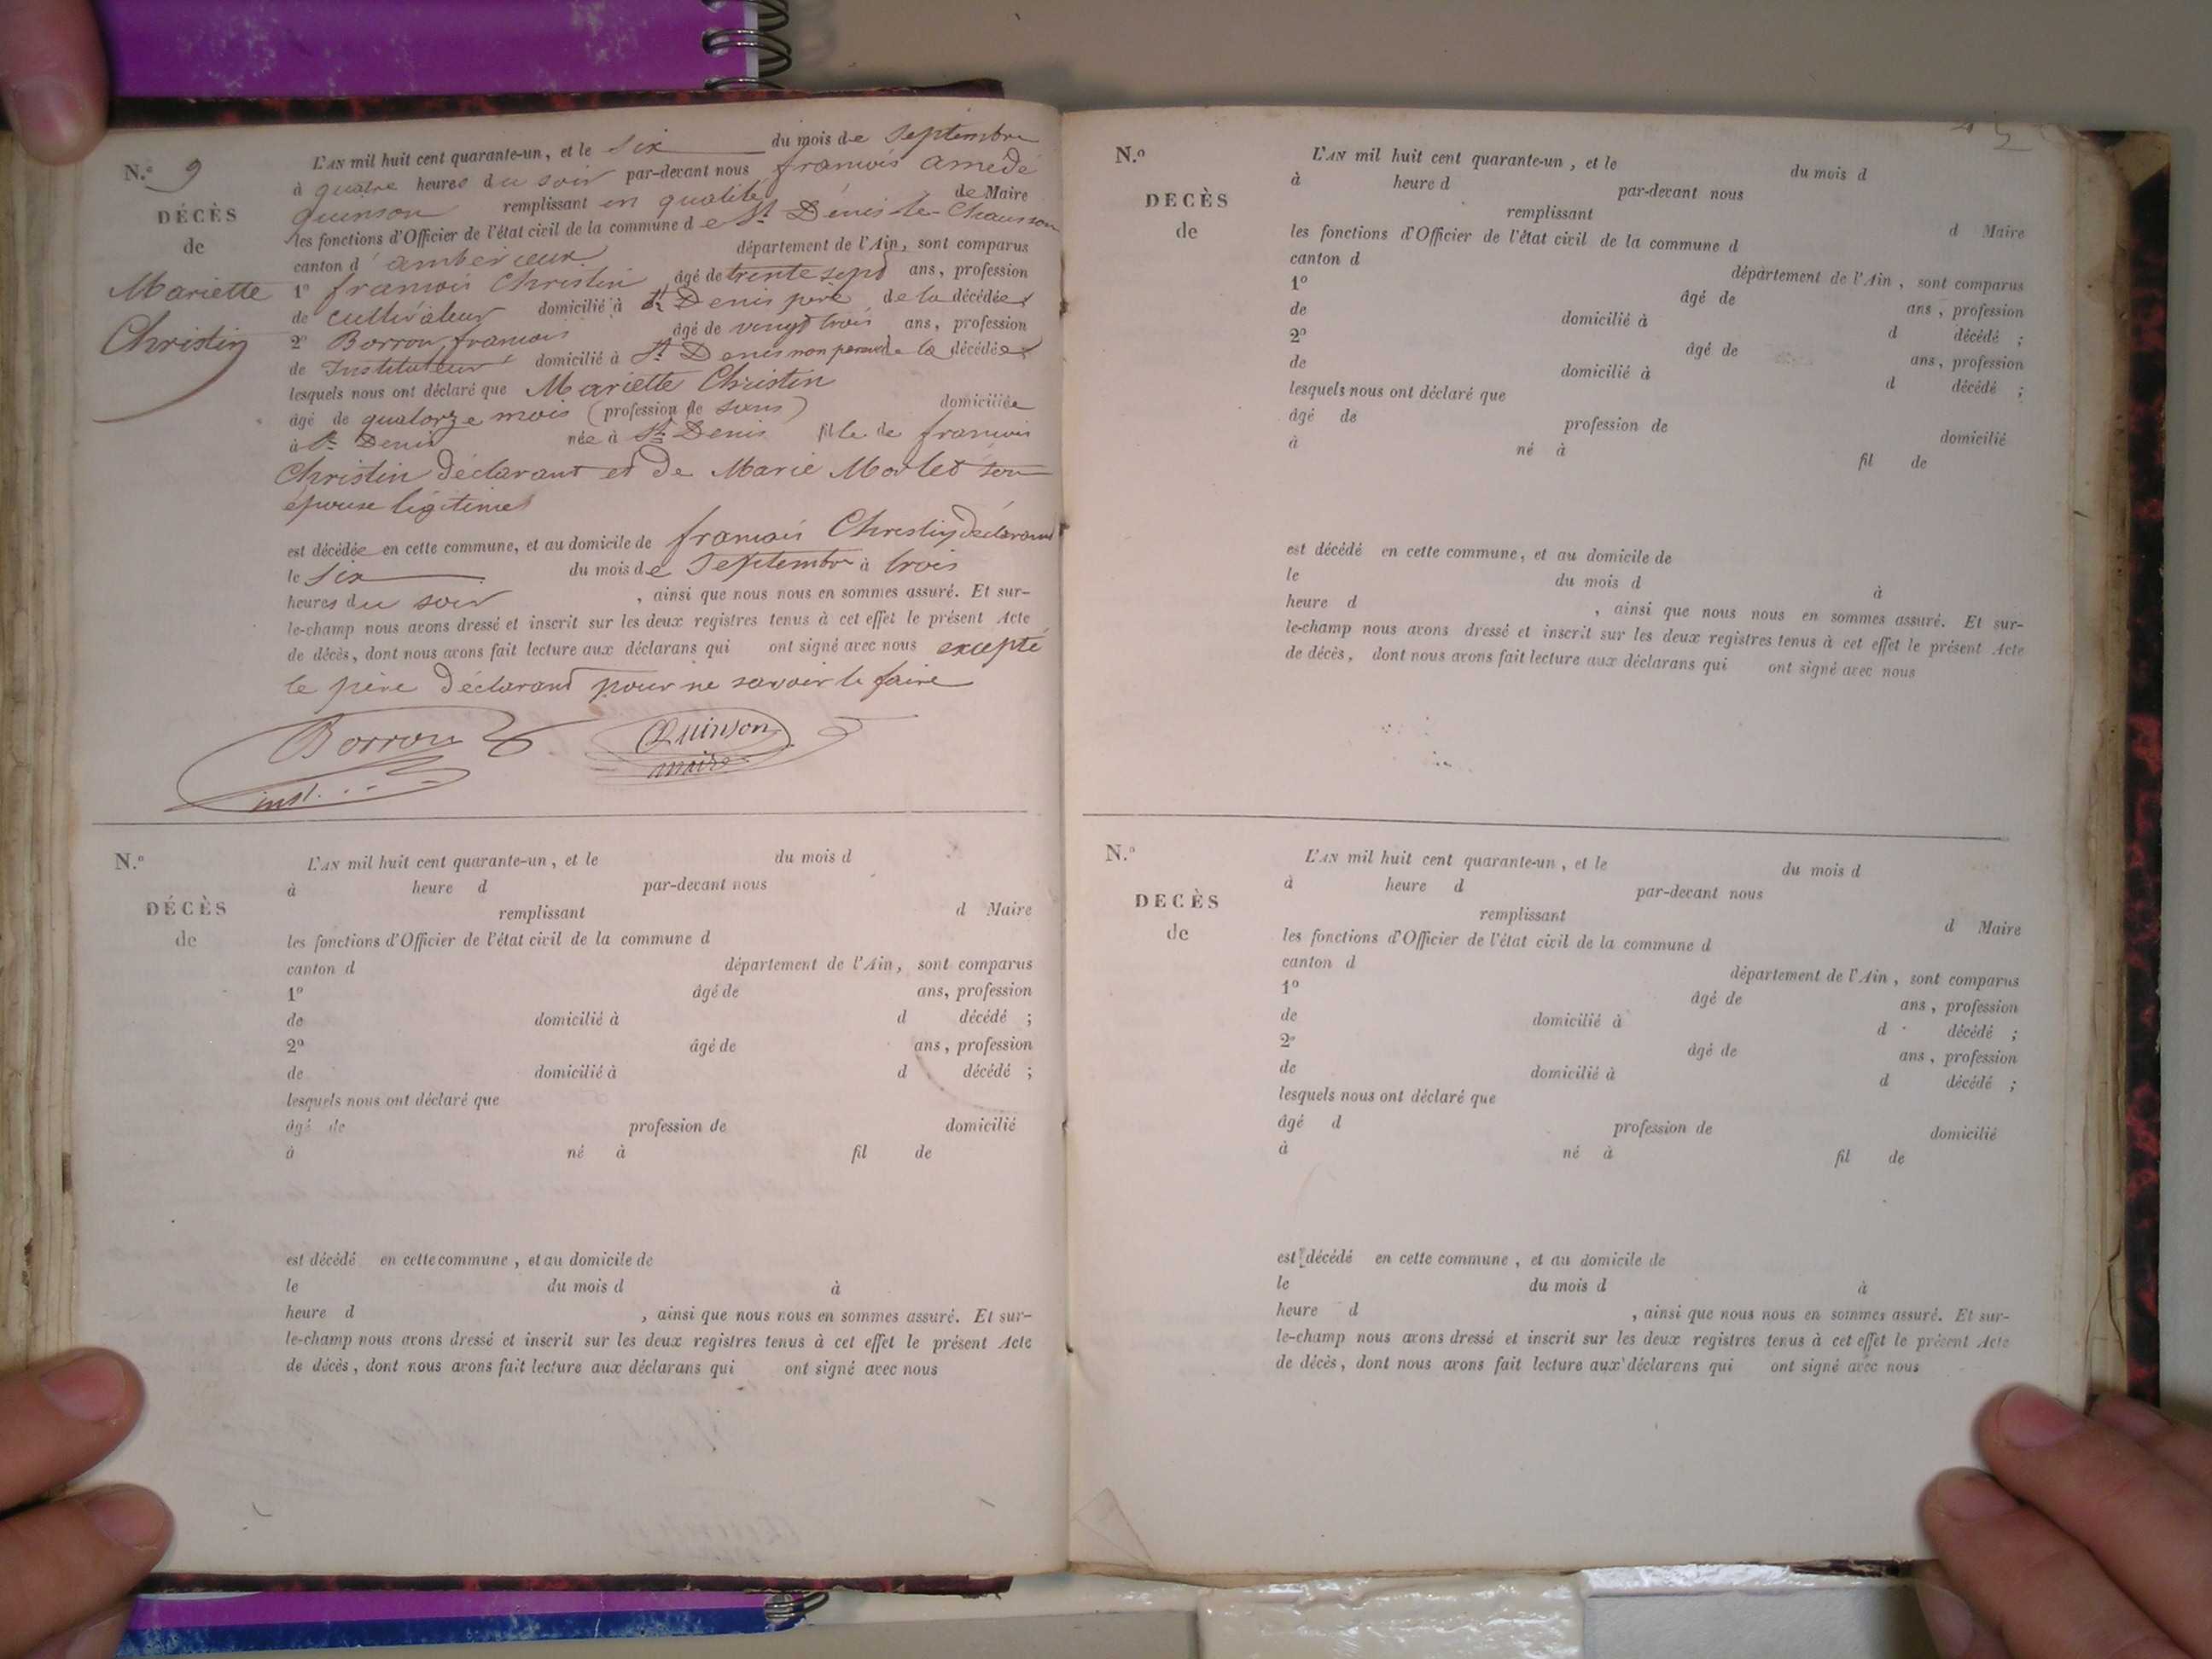 N.o 9
DÉCÈS
de
Mariette
Christin
L'AN mil huit cent quarante-un, et le six du mois de Septembre
à quatre heures du soir par-devant nous francois amédé
quinson remplissant en qualité de Maire
les fonctions d'Officier de l'état civil de la commune de St Denis-le-Chausson
canton d'amberieux département de l'Ain, sont comparus
1o francois Christin, âgé de trente sept ans, profession
de cultivateur domicilié à St Denis père de la décédée
2o Borron francois âgé de vingt trois ans, profession
de Instituteur domicilié à St Denis non parent de la décédée
lesquels nous ont déclaré que Mariette Christin
âgé de quatorze mois (profession de sans) domiciliée
à St Denis née à St Denis fille de francois
Christin déclarant et de Marie Morlet son
épouse légitime
est décédée en cette commune, et au domicile de francois Christin déclarant
le six du mois de Septembre à trois
heures du soir, ainsi que nous nous en sommes assuré. Et sur-
le-champ nous avons dressé et inscrit sur les deux registres tenus à cet effet le présent Acte
de décès, dont nous avons fait lecture aux déclarans qui ont signé avec nous excepté
le père déclarant pour ne savoir le faire
Borron Quinson
inst. maire
N.o
DÉCÈS
de
L'AN mil huit cent quarante-un, et le du mois d
à heure d par-devant nous
remplissant d Maire
les fonctions d'Officier de l'état civil de la commune d
canton d département de l'Ain, sont comparus
1o âgé de ans, profession
de domicilié à d décédé ;
2o âgé de ans, profession
de domicilié à d décédé ;
lesquels nous ont déclaré que
âgé de profession de domicilié
à né à fil de
est décédé en cette commune, et au domicile de
le du mois d à
heure d , ainsi que nous nous en sommes assuré. Et sur-
le-champ nous avons dressé et inscrit sur les deux registres tenus à cet effet le présent Acte
de décès, dont nous avons fait lecture aux déclarans qui ont signé avec nous
N.o
DECÈS
de
L'AN mil huit cent quarante-un, et le du mois d
à heure d par-devant nous
remplissant d Maire
les fonctions d'Officier de l'état civil de la commune d
canton d département de l'Ain, sont comparus
1o âgé de ans, profession
de domicilié à d décédé ;
2o âgé de ans, profession
de domicilié à d décédé ;
lesquels nous ont déclaré que
âgé de profession de domicilié
à né à fil de
est décédé en cette commune, et au domicile de
le du mois d à
heure d , ainsi que nous nous en sommes assuré. Et sur-
le-champ nous avons dressé et inscrit sur les deux registres tenus à cet effet le présent Acte
de décès, dont nous avons fait lecture aux déclarans qui ont signé avec nous
N.o
DECÈS
de
L'AN mil huit cent quarante-un, et le du mois d
à heure d par-devant nous
remplissant d Maire
les fonctions d'Officier de l'état civil de la commune d
canton d département de l'Ain, sont comparus
1o âgé de ans, profession
de domicilié à d décédé ;
2o âgé de ans, profession
de domicilié à d décédé ;
lesquels nous ont déclaré que
âgé d profession de domicilié
à né à fil de
est décédé en cette commune, et au domicile de
le du mois d à
heure d , ainsi que nous nous en sommes assuré. Et sur-
le-champ nous avons dressé et inscrit sur les deux registres tenus à cet effet le présent Acte
de décès, dont nous avons fait lecture aux déclarans qui ont signé avec nous